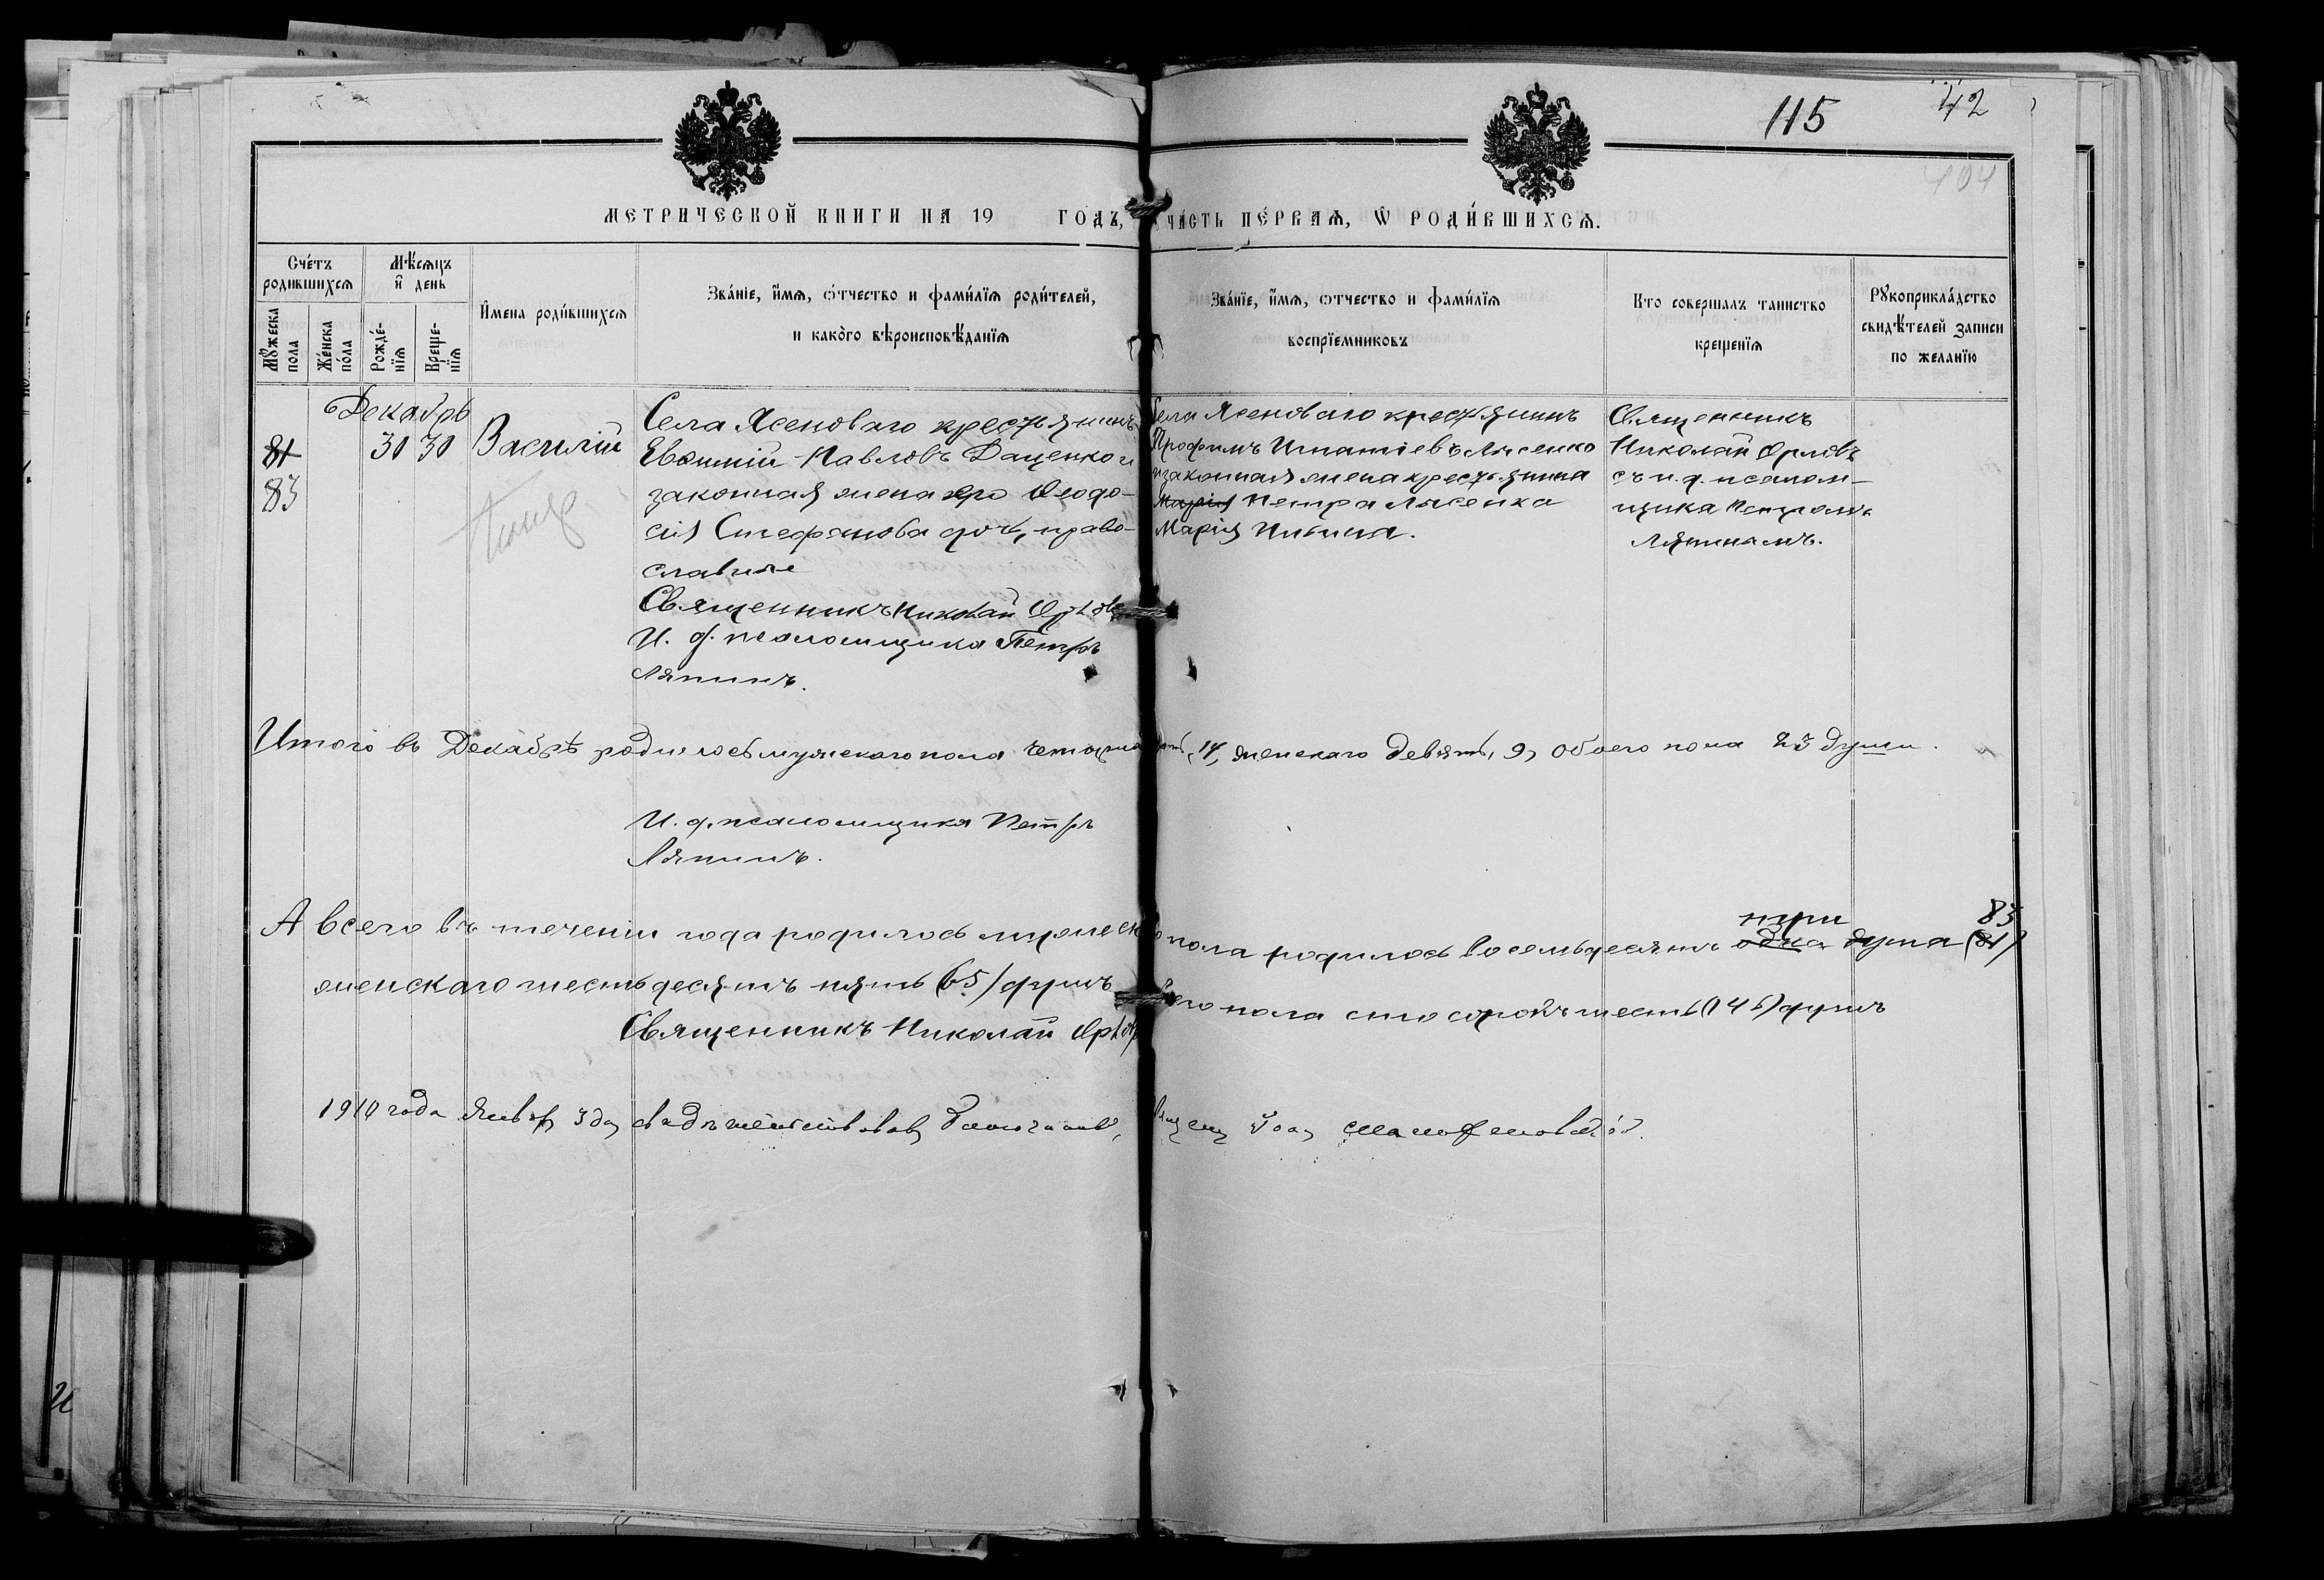 115
42
404
МЕТРИЧЕСКОЙ КНИГИ НА 19 ГОДЪ, ЧА́СТЬ ПЕ́РВАѦ, Ѿ РОДИ́ВШИХСѦ.
Сче́тъ родившихсѧ
Мѣ́сѧцъ и день
Имена роди́вшихсѧ
Зва́нїе, и́мѧ, о́тчество и фами́лїѧ роди́телей,
и како́го вѣроисповѣ́данїѧ
Зва́нїе, и́мѧ, ѻтчество и фами́лїѧ
воспрїемниковъ
Кто совершалъ таинство
крещенїѧ
Рꙋкоприкла́дство
свидѣ́телей записи
по желанїю
Мꙋжеска пола
Же́нска по́ла
Рожде́-нїѧ
Креще-нїѧ
Декабрь
81
83
30 30
Василій
Села Ясеноваго крестьянинъ
Евѳимій Павловъ Даценко и
законная жена его Ѳеодо-
сія Стефанова дочь, право-
славные
Священникъ Николай Орловъ
И. д. псаломщика Петръ
Ляпинъ.
Села Ясеноваго крестьянинъ
Трофимъ Игнатіевъ Лысенко
и законная жена крестьянина
Марія Петра Лысенка
Марія Ильина.
Священникъ
Николай Орловъ
съ и. д. псалом-
щика Петромъ
Ляпинамъ.
Итого въ Декабрѣ родилось мужскаго пола четырнадцать, 14, женскаго девять, 9, обоего пола 23 души.
И. д. псаломщика Петръ
Ляпинъ.
А всего въ теченіи года родилось мужеско пола родилось восемьдесятъ одна три душа (81) 83
женскаго шестьдесятъ пять (65) душъ
его пола сто сорокъ шесть (146) душъ
Священникъ Николай Орловъ
1910 года Январ 3 д свидѣтельствовал Благочинн,